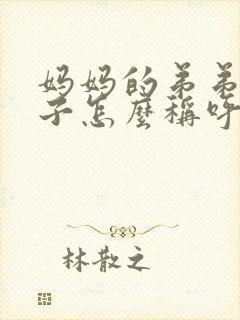 妈妈的弟弟
子怎麽稱呼
林散之